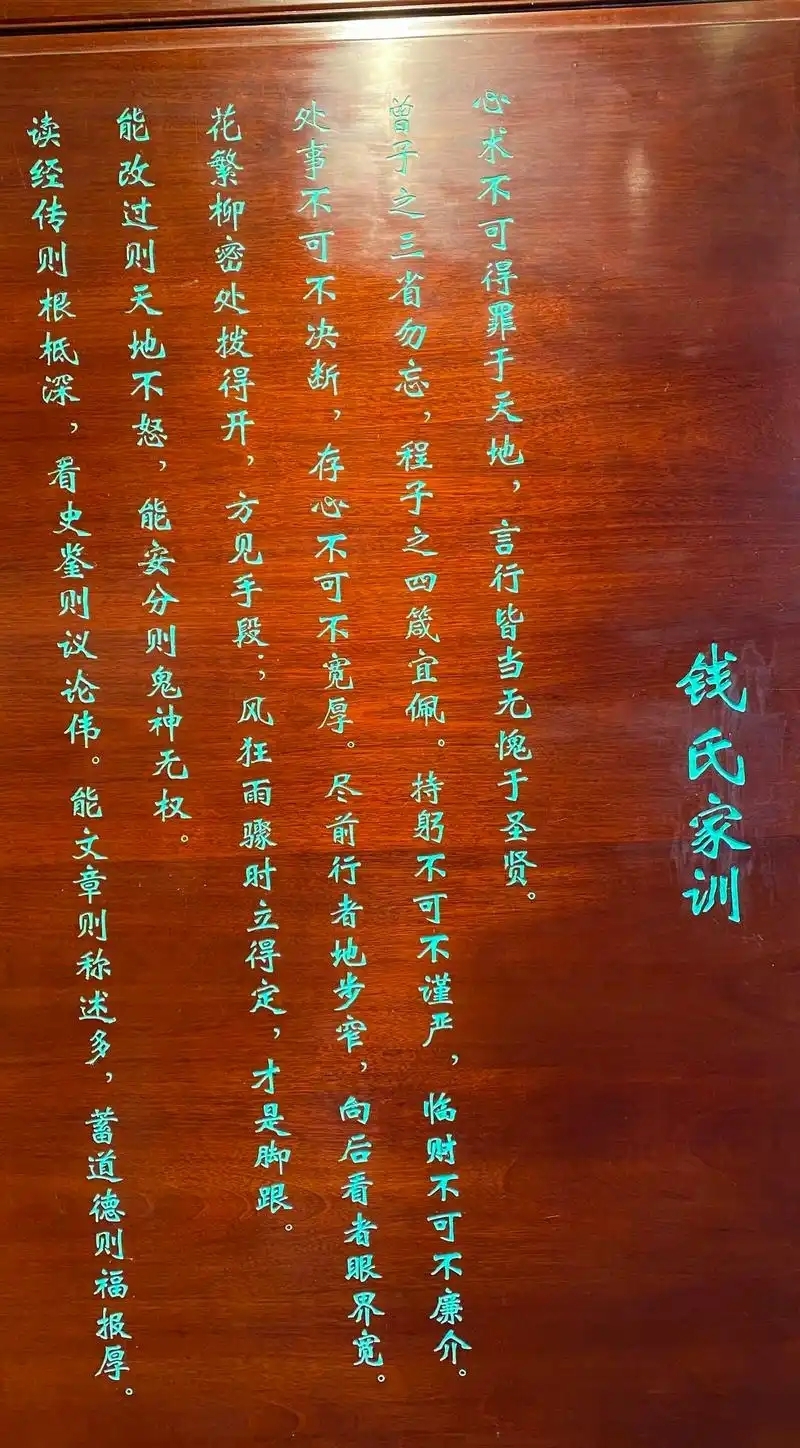 钱氏家训
心术不可得罪于天地，言行皆当无愧于圣贤。
曾子之三省勿忘，程子之四箴宜佩。持躬不可不谨严，临财不可不廉介。
处事不可不决断，存心不可不宽厚。尽前行者地步窄，向后看者眼界宽。
花繁柳密处拨得开，方见手段；风狂雨骤时立得定，才是脚跟。
能改过则天地不怒，能安分则鬼神无权。
读经传则根柢深，看史鉴则议论伟。能文章则称述多，蓄道德则福报厚。